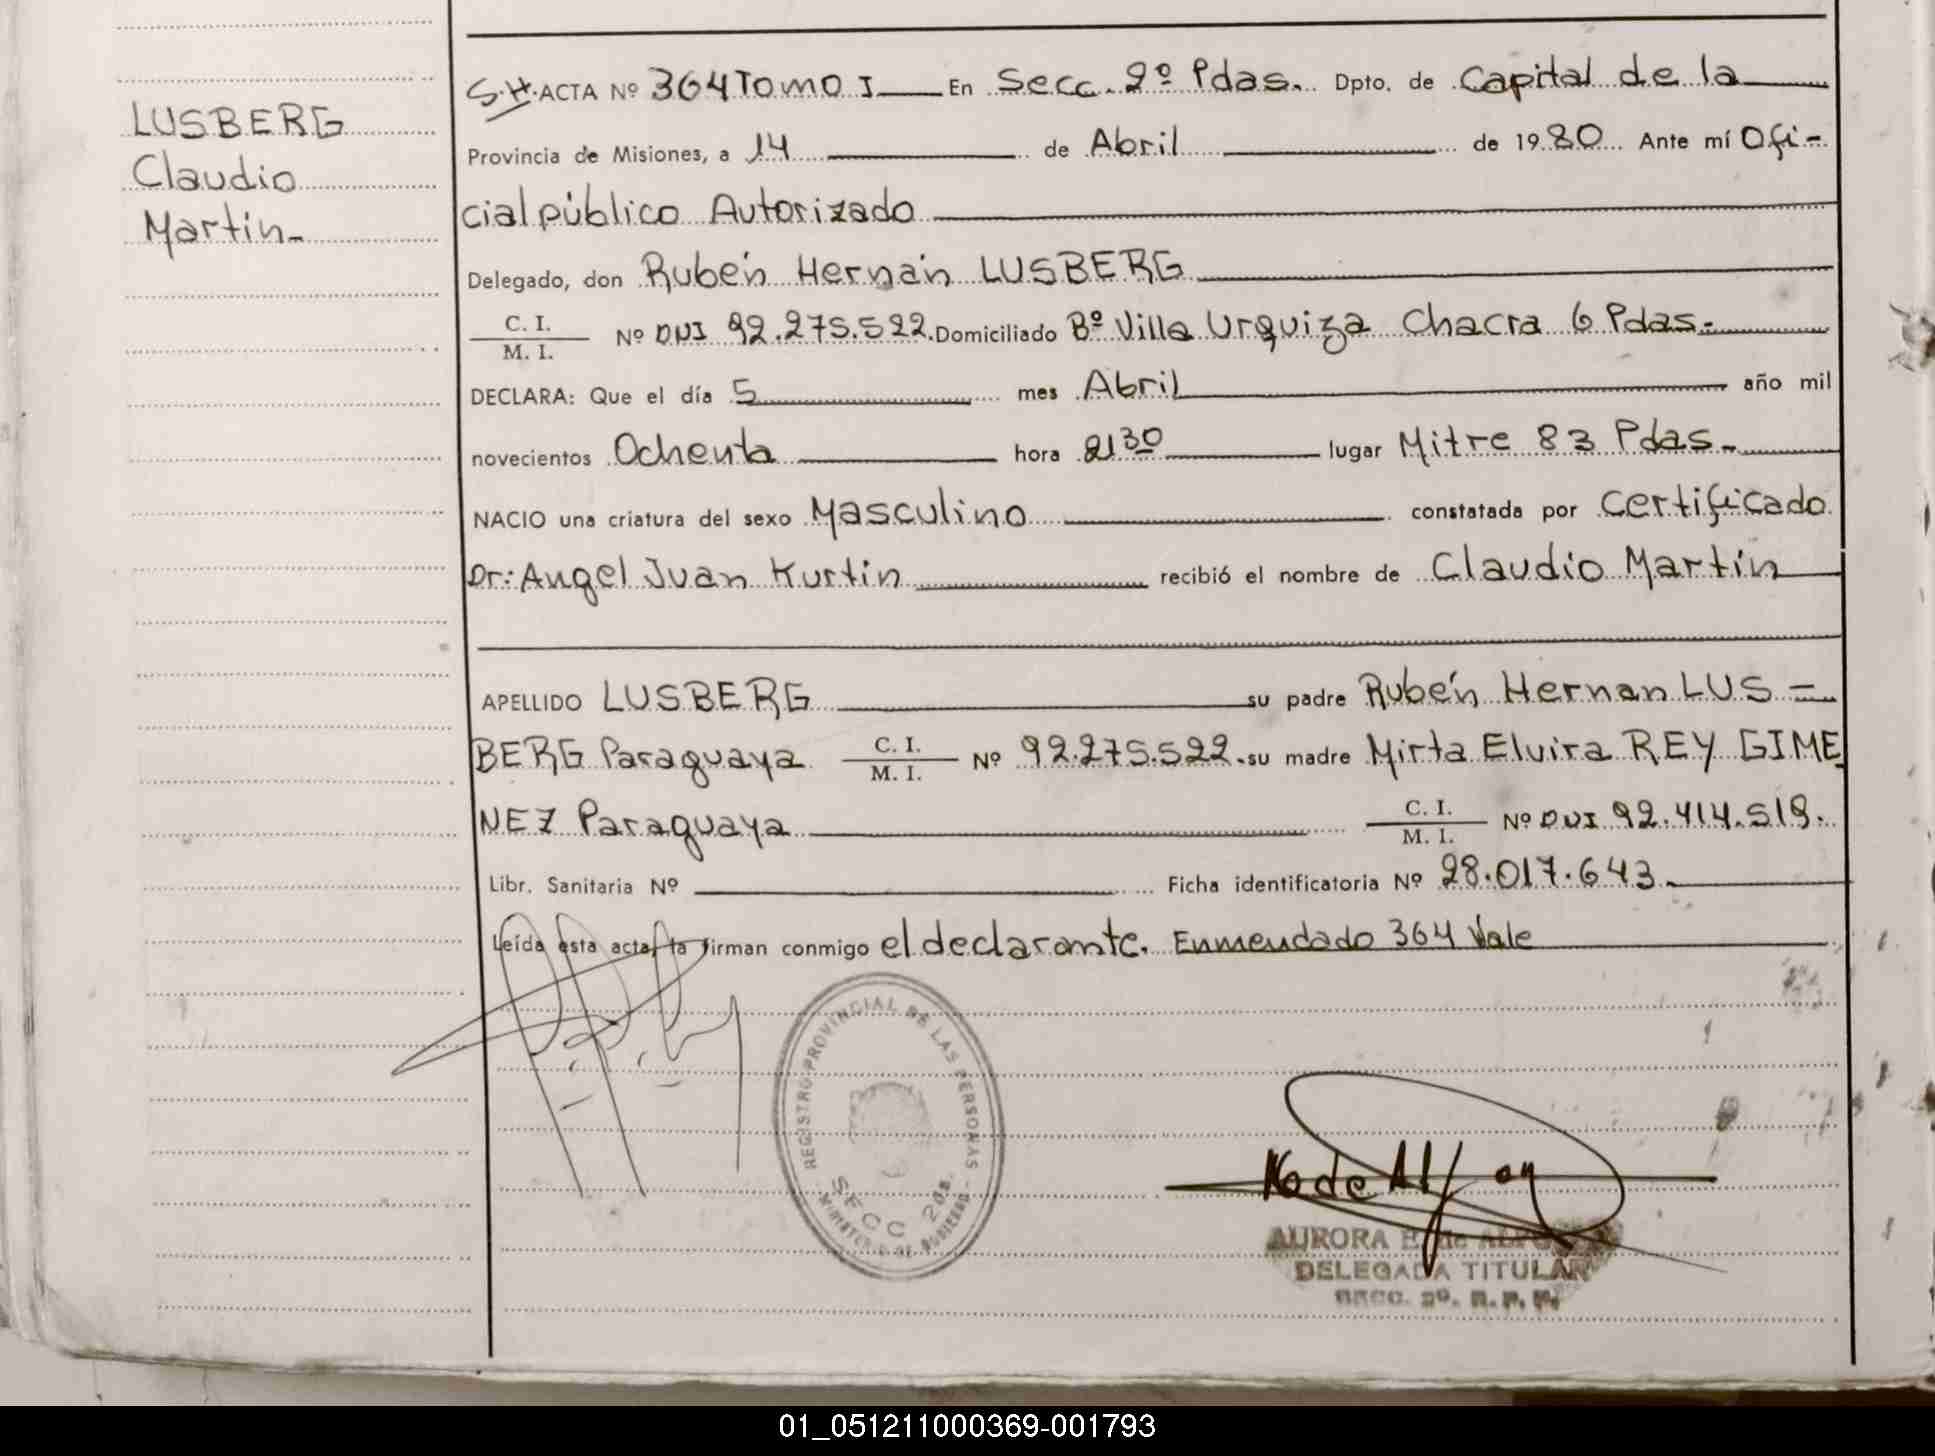 LUSBERG
Claudio
Martín-
S.H. ACTA Nº 364 Tomo I En Secc. 2º Pdas. Dpto. de Capital de la
Provincia de Misiones, a 14 de Abril de 1980 Ante mí Ofi-
cial público Autorizado
Delegado, don Rubén Hernán LUSBERG
C. I.
M. I. Nº DNI 92.275.522. Domiciliado Bº Villa Urquiza Chacra 6 Pdas.-
DECLARA: Que el día 5 mes Abril año mil
novecientos Ochenta hora 21 30 lugar Mitre 83 Pdas.-
NACIO una criatura del sexo Masculino constatada por Certificado
Dr: Angel Juan Kurtin recibió el nombre de Claudio Martín
APELLIDO LUSBERG su padre Rubén Hernan LUS-
BERG Paraguaya C. I. M. I. Nº 92.275.522. su madre Mirta Elvira REY GIME
NEZ Paraguaya C. I. M. I. Nº DNI 92.414.519.
Libr. Sanitaria Nº Ficha identificatoria Nº 28.017.643.-
Leída esta acta, la firman conmigo el declarante. Enmendado 364 Vale
REGISTRO PROVINCIAL DE LAS PERSONAS
SECC 2da.
MINISTERIO DE GOBIERNO
AURORA E. de
DELEGADA TITULAR
SECC. 2º. R. P. P.
01_051211000369-001793